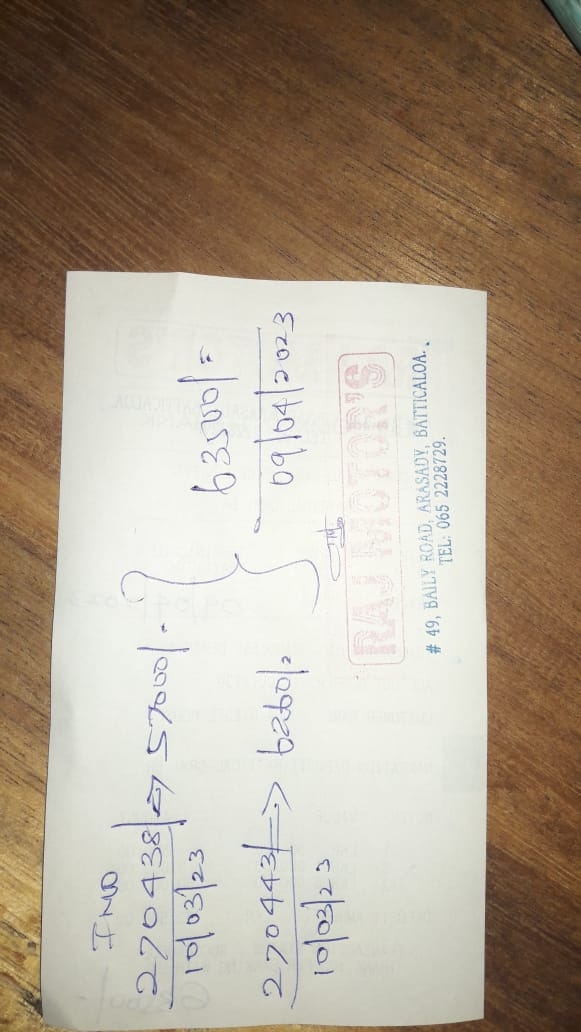 INNO
270438/ => 57000/-
10/03/23
270443/ => 6260/=
10/03/23
63500/=
09/04/2023
RAJ MOTOR'S
# 49, BAILY ROAD, ARASADY, BATTICALOA.
TEL: 065 2228729.